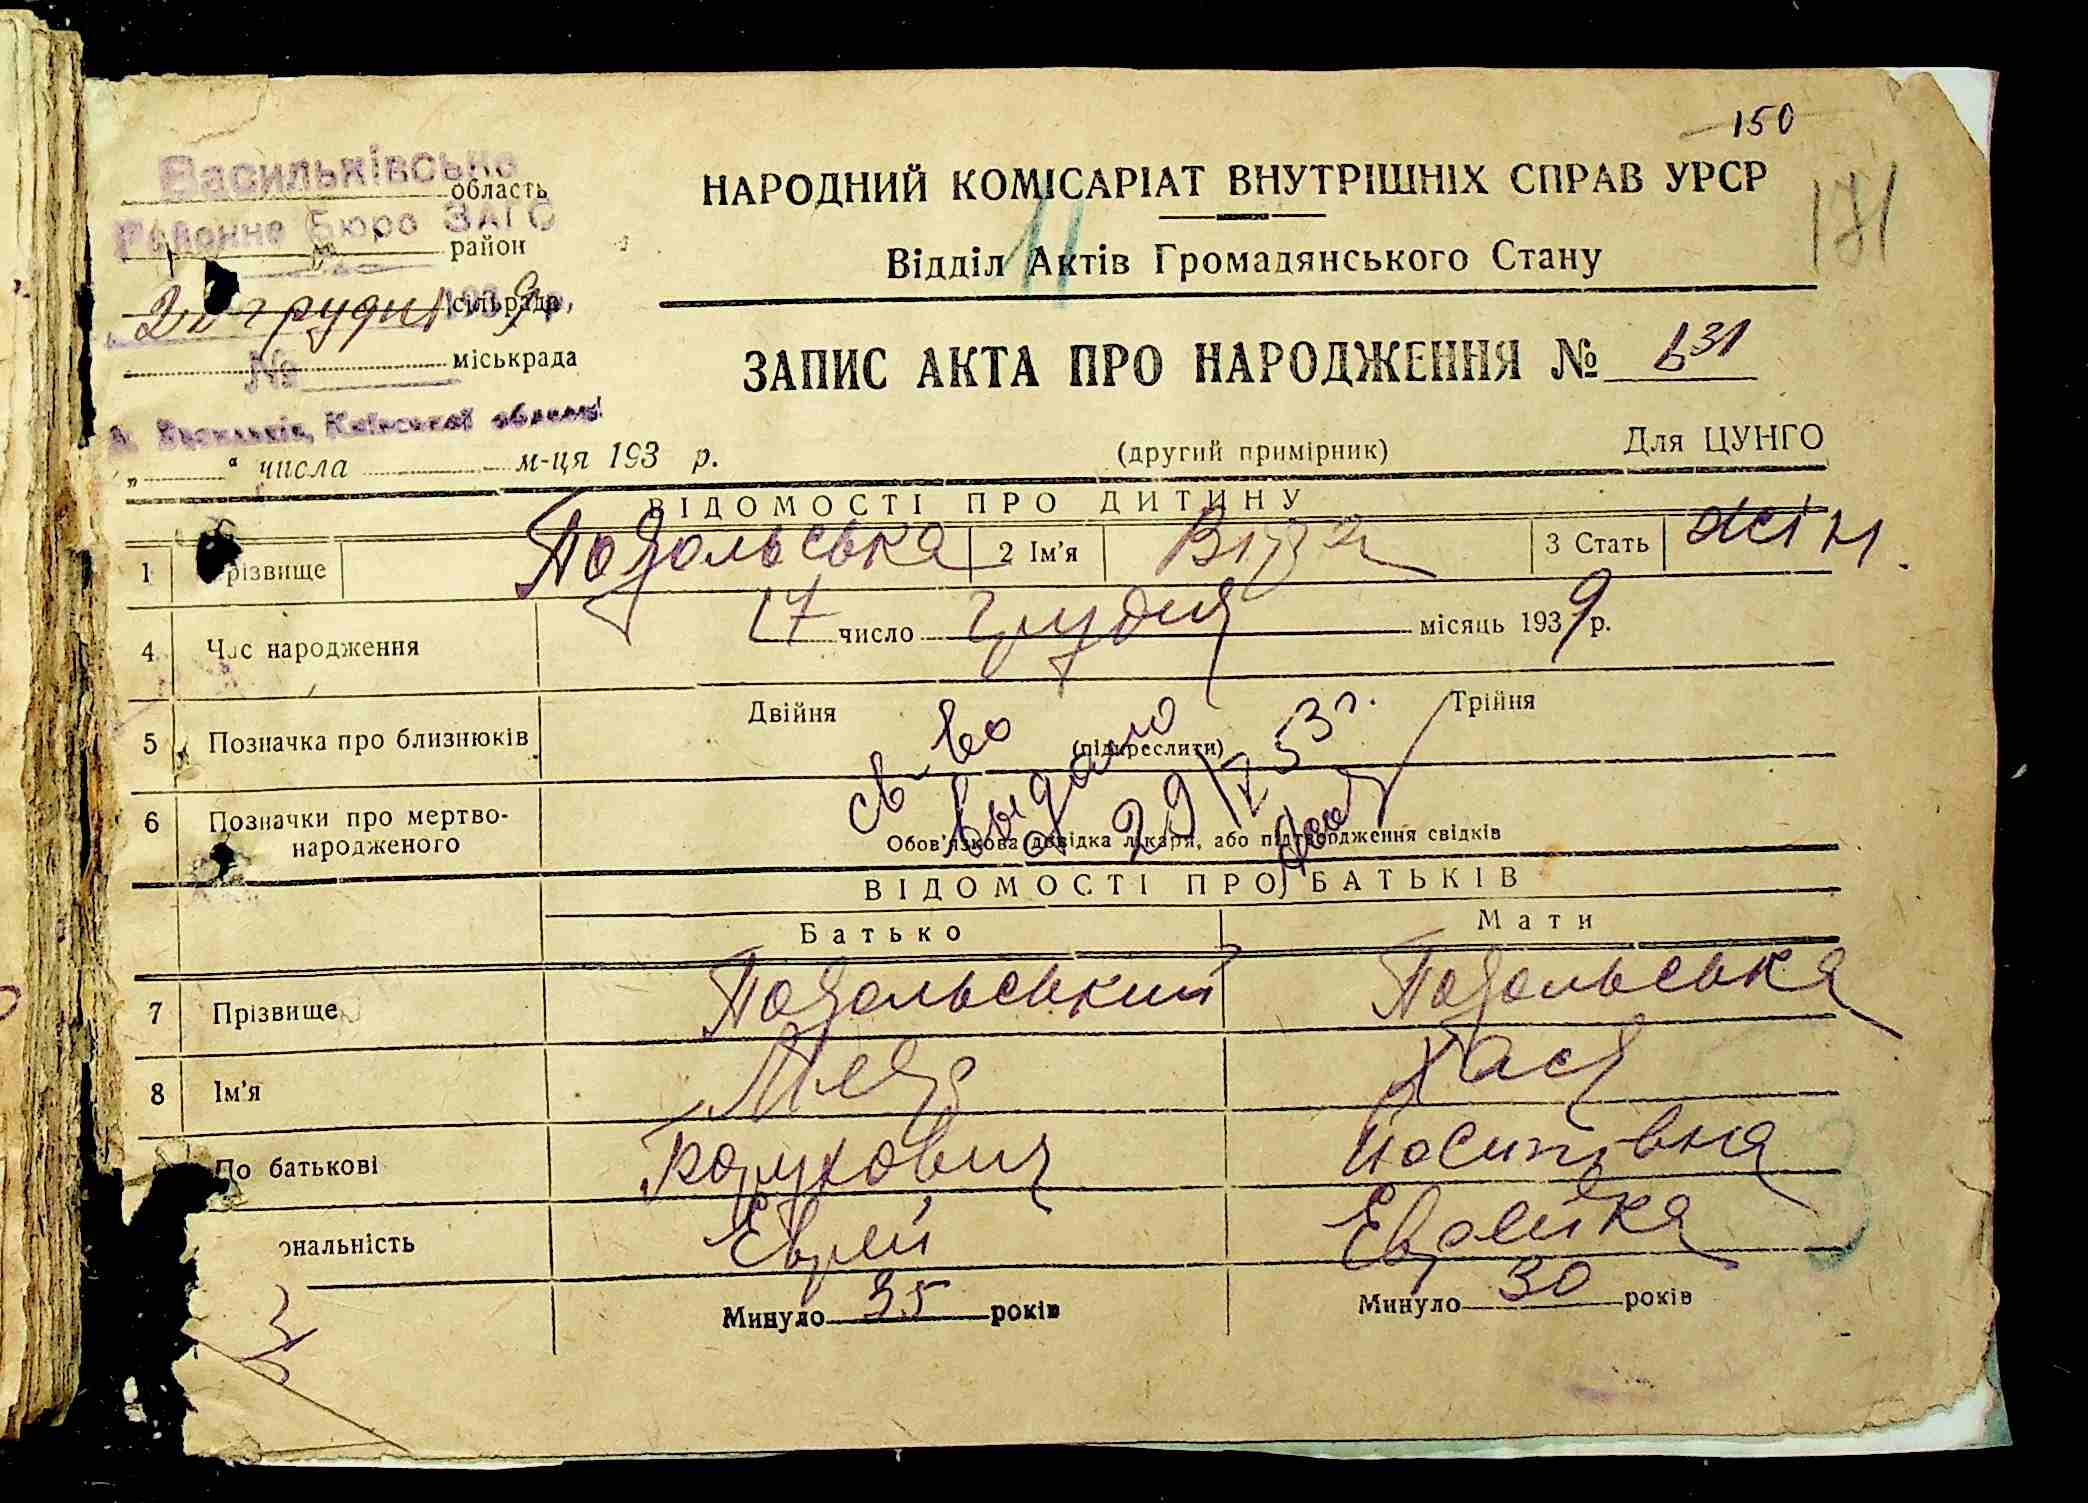 150
171
Васильківське
область
Районне Бюро ЗАГС
район
грудня 1939 р.
сільрада
№
міськрада
м. Васильків, Київської області
„ “ числа м-ця 193 р.
НАРОДНИЙ КОМІСАРІАТ ВНУТРІШНІХ СПРАВ УРСР
Відділ Актів Громадянського Стану
ЗАПИС АКТА ПРО НАРОДЖЕННЯ № 631
(другий примірник)
Для ЦУНГО
ВІДОМОСТІ ПРО ДИТИНУ
1 різвище Подольська 2 Ім’я 3 Стать жін.
4 Час народження 17 число грудня місяць 1939 р.
5 Позначка про близнюків Двійня (підкреслити) Трійня
св-во выдано 29/V 53 г.
6 Позначки про мертво-
народженого
Обов’язкова довідка лікаря, або підтвордження свідків
ВІДОМОСТІ ПРО БАТЬКІВ
Батько Мати
7 Прізвище Подольський Подольська
8 Ім’я Хася
По батькові Борухович Иосипівна
ональність Еврей Еврейка
Минуло 35 років Минуло 30 років